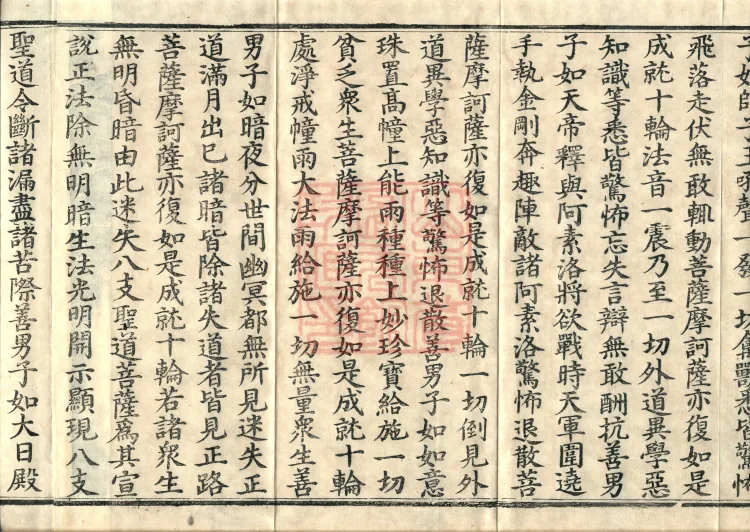 子如師子王吼聲一發一切禽獸悉皆驚怖
飛落走伏無敢輒動菩薩摩訶薩亦復如是
成就十輪法音一震乃至一切外道異學惡
知識等悉皆驚怖忘失言辯無敢酬抗善男
子如天帝釋與阿素洛將欲戰時天軍圍遶
手執金剛奔趣陣敵諸阿素洛驚怖退散菩
薩摩訶薩亦復如是成就十輪一切倒見外
道異學惡知識等驚怖退散善男子如如意
珠置髙幢上能雨種種上妙珍寶給施一切
貧乏衆生菩薩摩訶薩亦復如是成就十輪
處淨戒幢雨大法雨給施一切無量衆生善
男子如暗夜分世間幽冥都無所見迷失正
道滿月出已諸暗皆除諸失道者皆見正路
菩薩摩訶薩亦復如是成就十輪若諸衆生
無明昏暗由此迷失八支聖道菩薩爲其宣
說正法除無明暗生法光明開示顯現八支
聖道令斷諸漏盡諸苦際善男子如大日殿